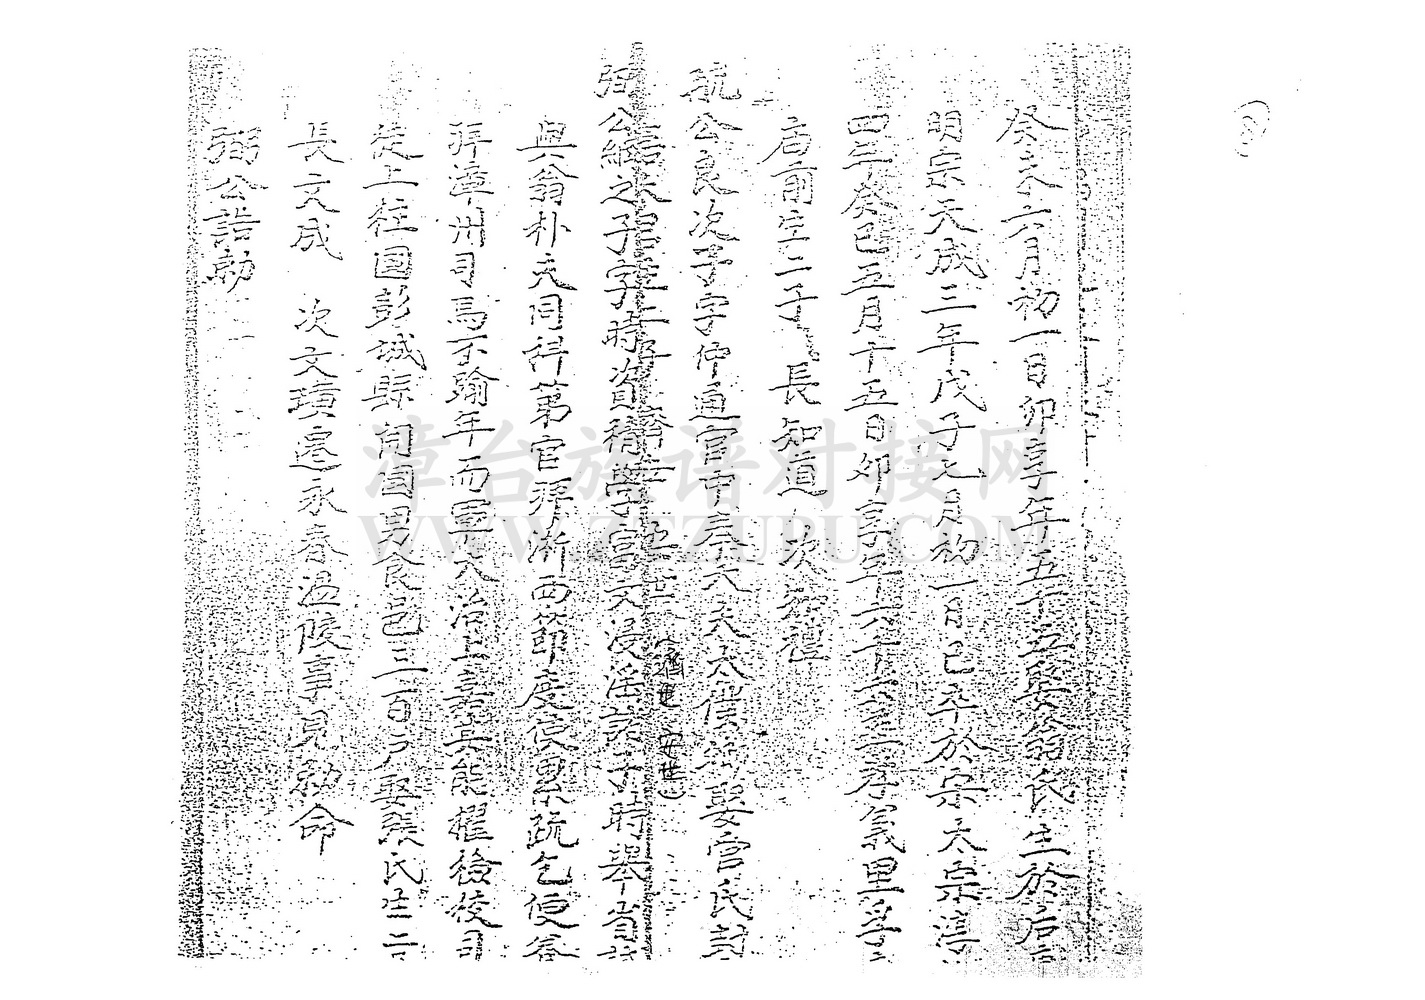 癸未六月初一日卯享年五十五娶翁氏生於后
明宗天成三年戊子九月初一日巳卒於宋太宗淳
四年癸巳五月十五日卯享年六十六孝義里
庙前生二子 長知道 次知禮
航公良次子字仲通官中奉大夫太僕娶曾氏
(濟世 安世)
弼公繼之子字時資稍學富文浸淫諸子時舉省
與翁朴夫同科第官拜浙西節度使累疏乞便
拜漳州司馬不踰年而軍大治上嘉其能擢檢校司
徒上柱國彭城縣開國男食邑三百户娶張氏生二
長文成 次文璜遷永春温陵事見勅命
弼公誥勅
漳台族谱对接网
WWW.ZTZUPU.COM